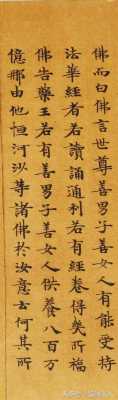 佛而白佛言世尊善男子善女人有能受持
法華經者若讀誦通利若有經卷得幾所福
佛告藥王若有善男子善女人供養八百万
億那由他恒河沙等諸佛於汝意云何其所